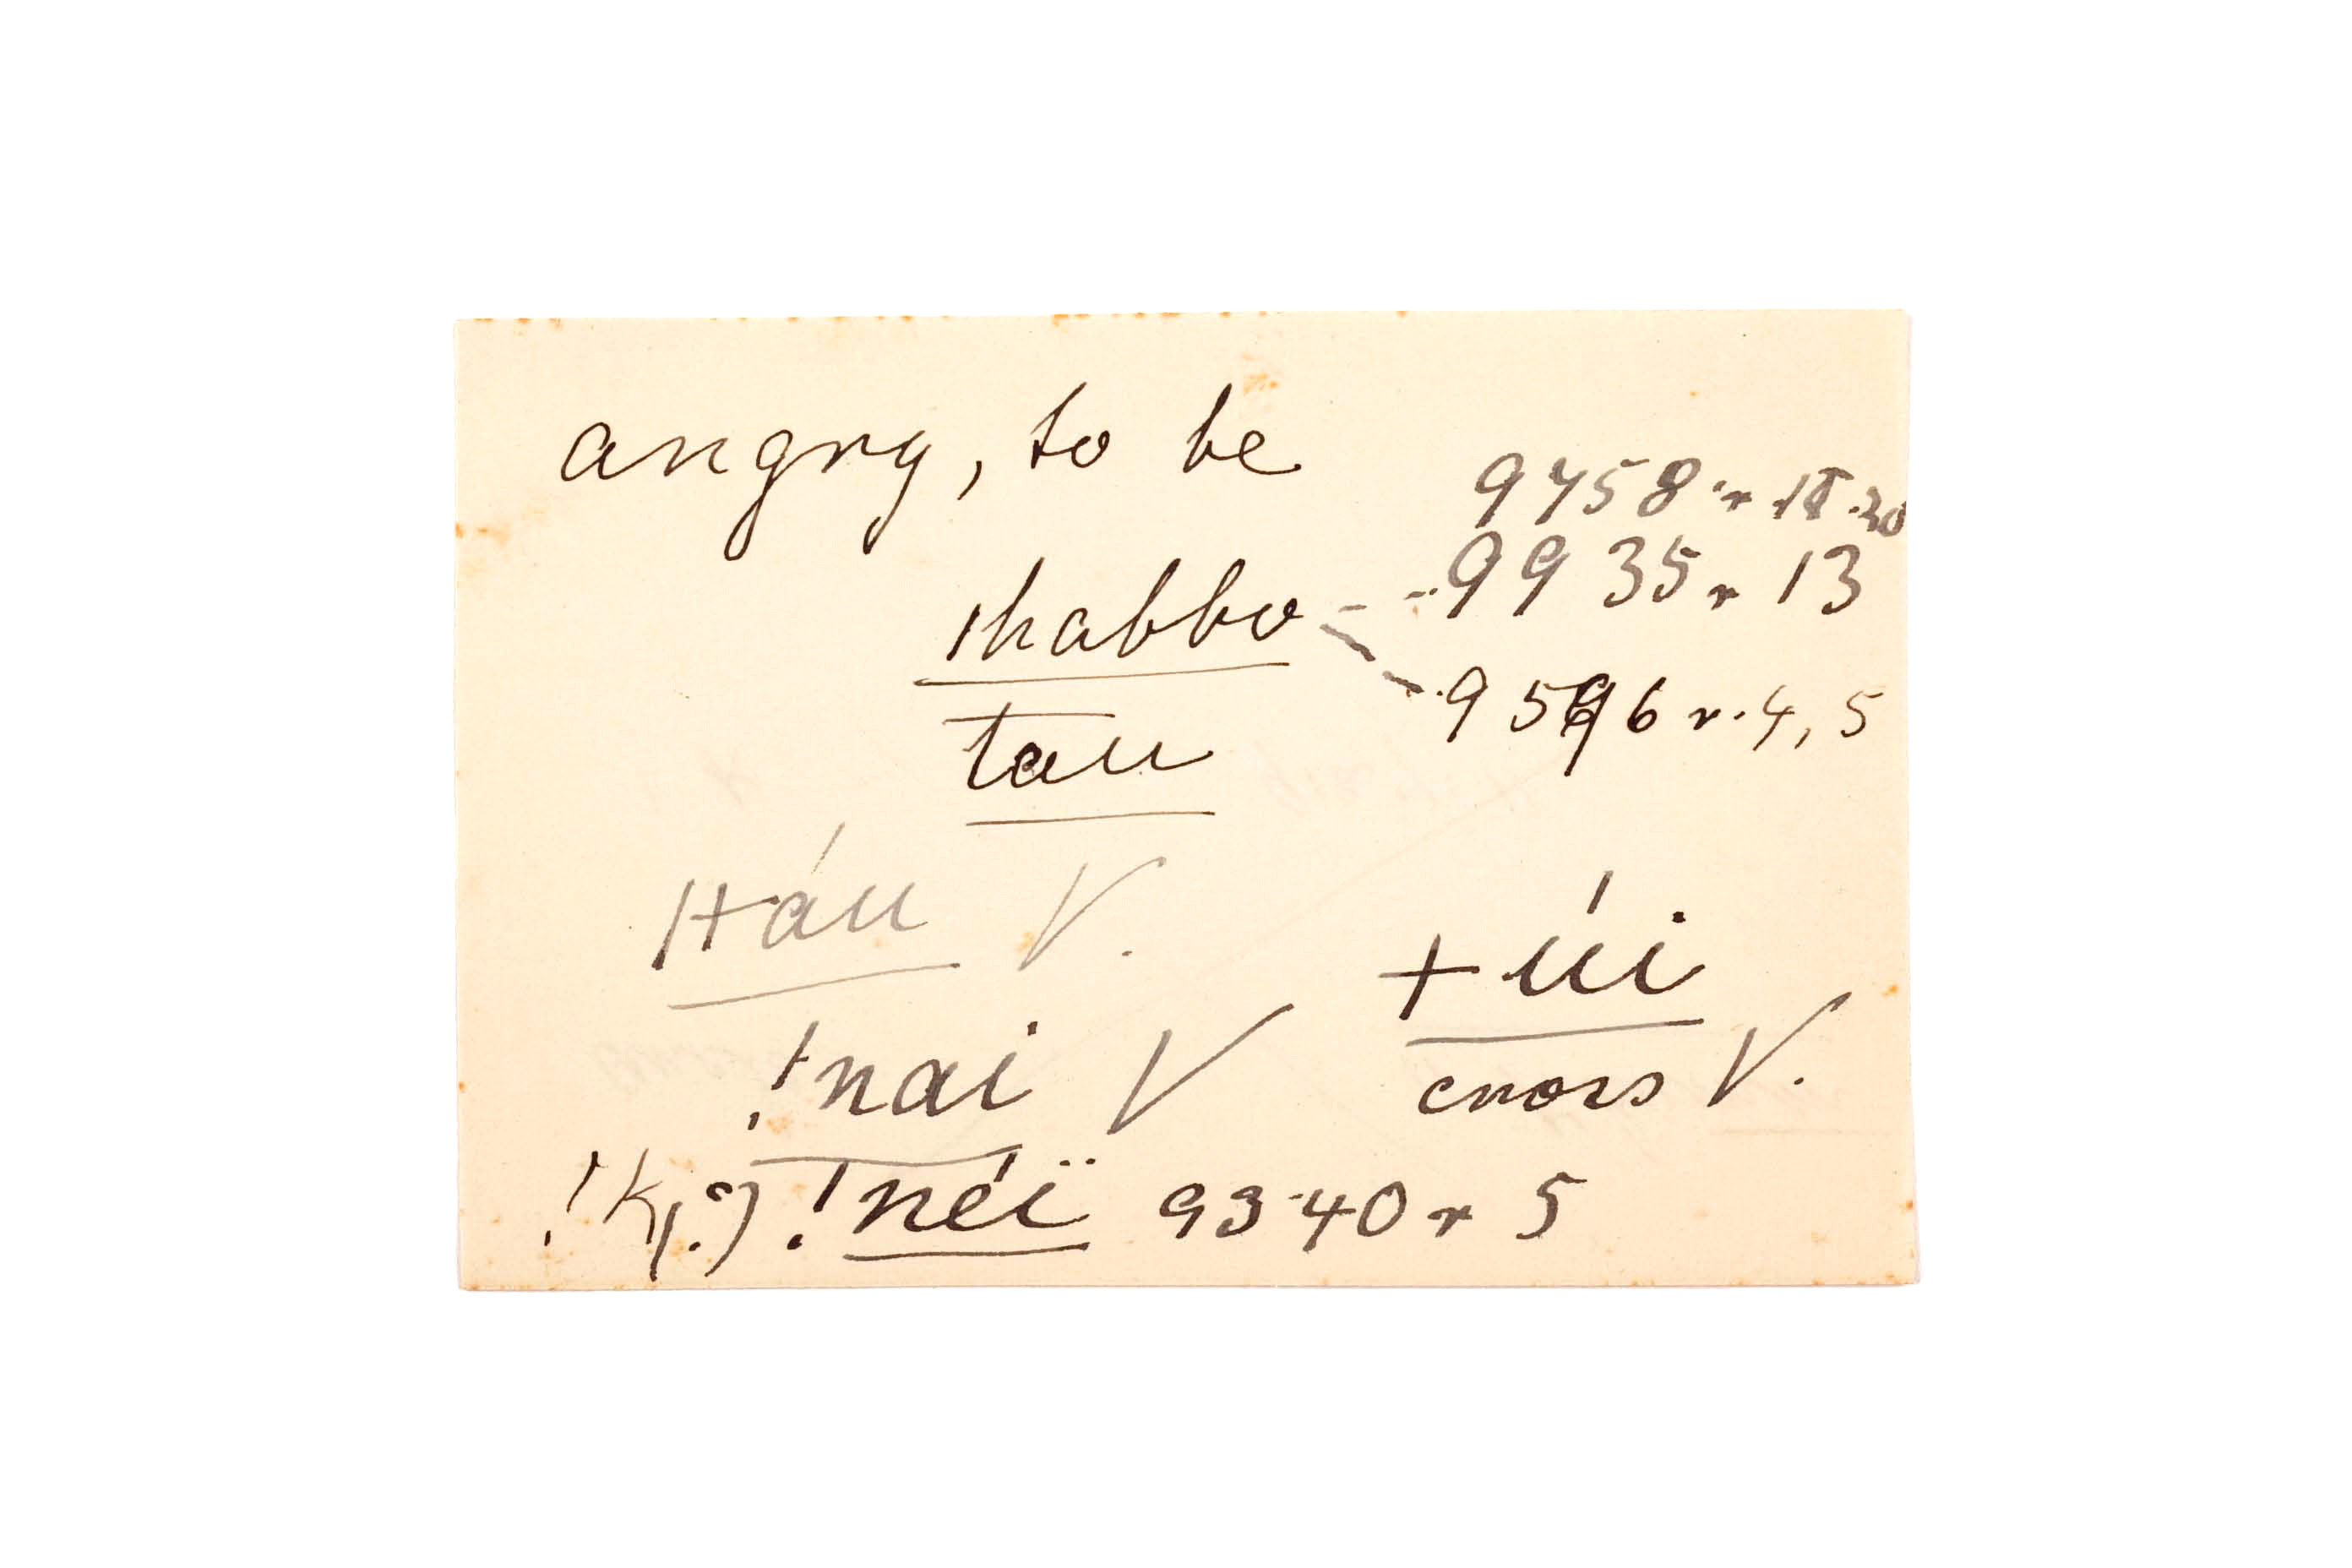 angry, to be
9458 r 18.20
ǀhabbo -- 9935 r 13
9596 r. 4, 5
t̅au
ǀ+áu V.
+úi
!nai V
cross V.
!k(?) !néï 9340 r 5